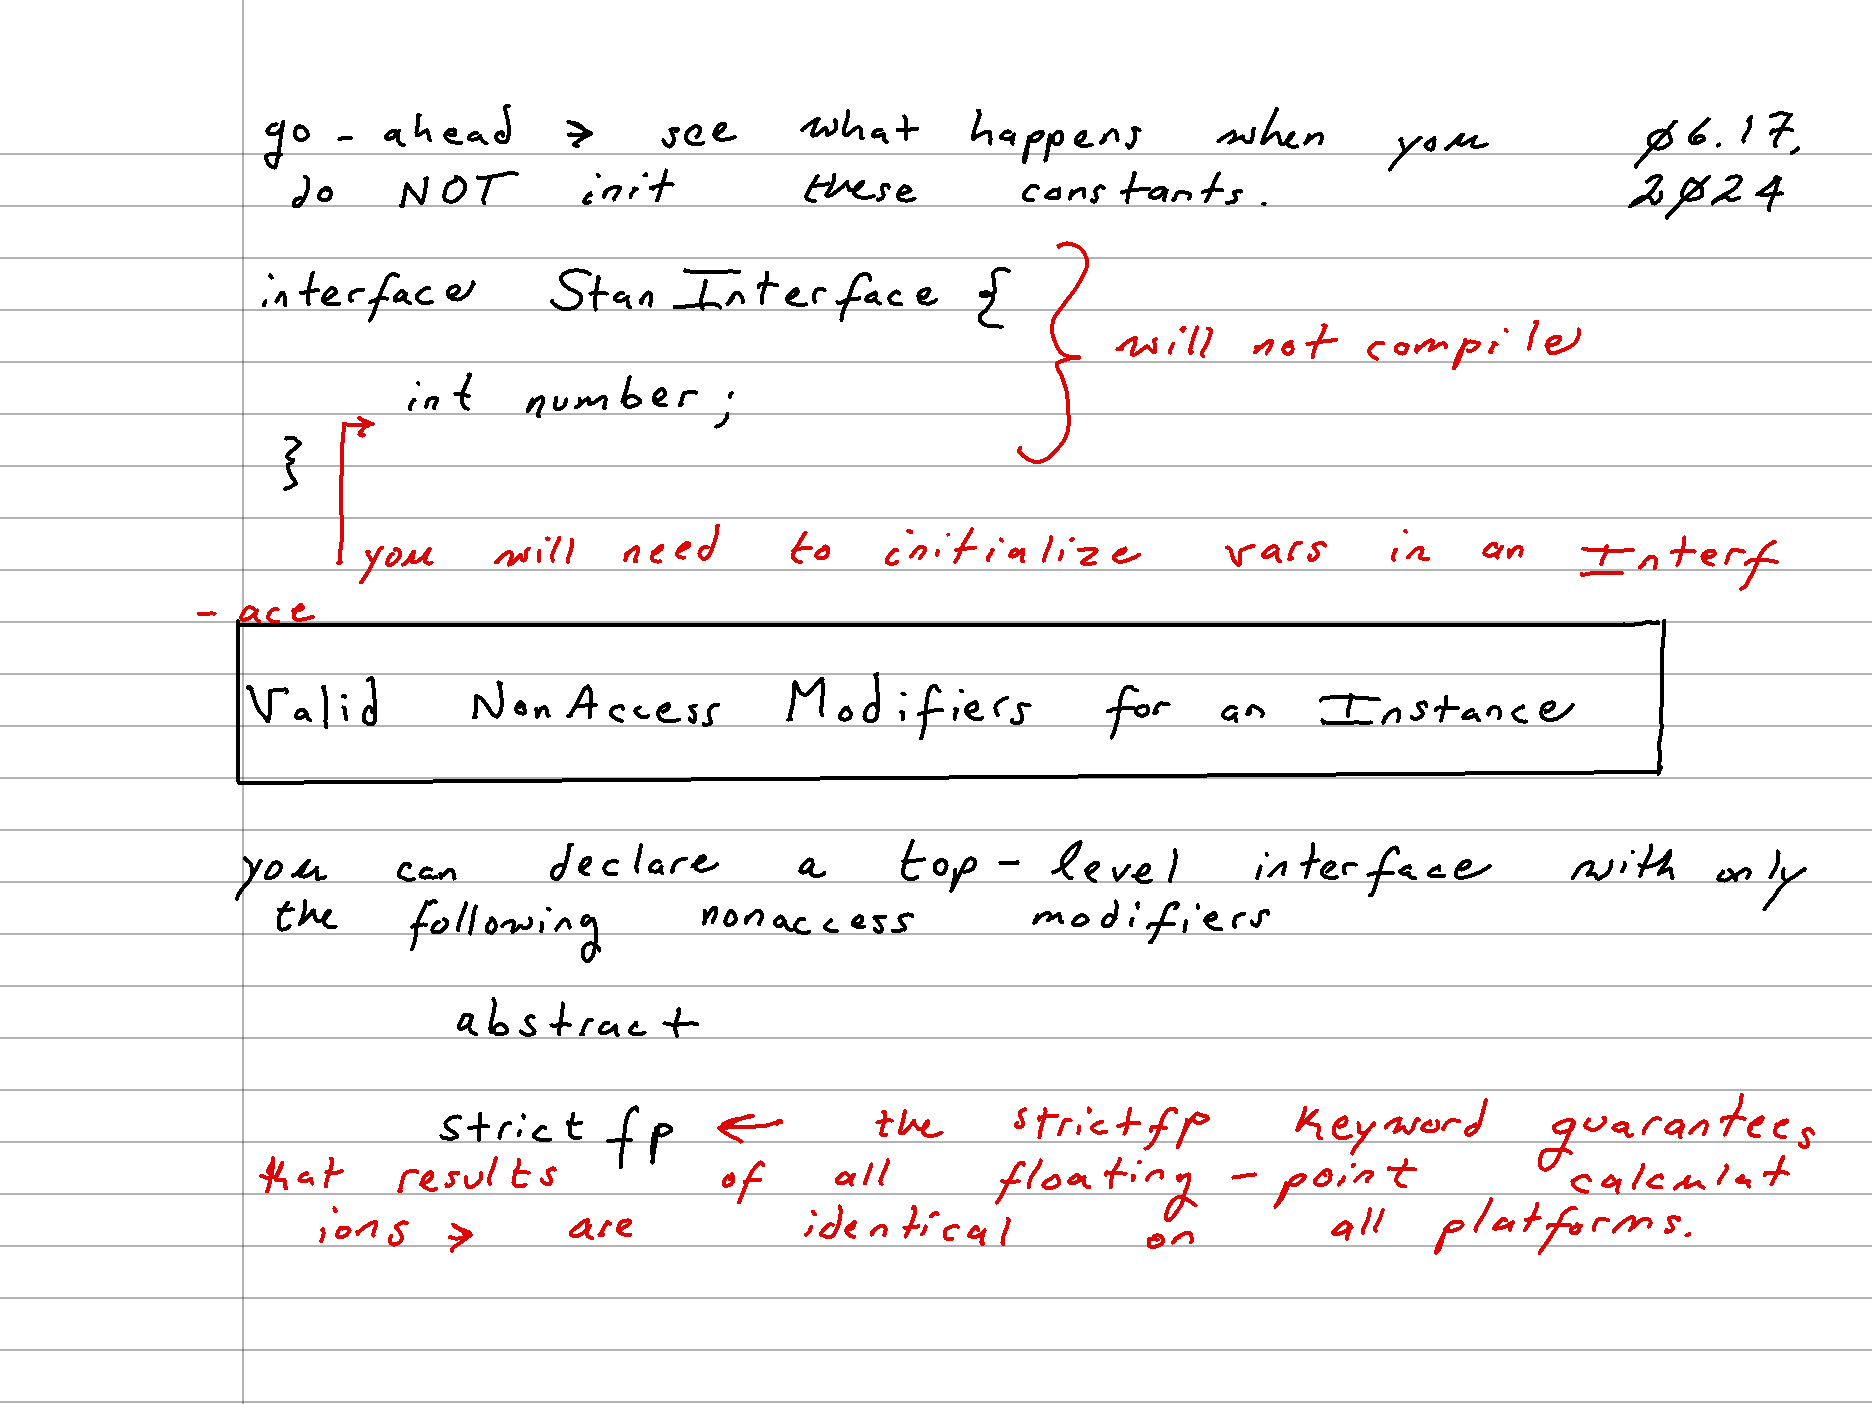 go - ahead → see what happens when you Ø6.17,
do NOT init these constants. 2Ø24
interface StanInterface {
will not compile
int number;
}
you will need to initialize vars in an Interf
- ace
Valid NonAccess Modifiers for an Instance
you can declare a top-level interface with only
the following nonaccess modifiers
abstract
strictfp ← the strictfp keyword guarantees
that results of all floating-point calculat
ions → are identical on all platforms.